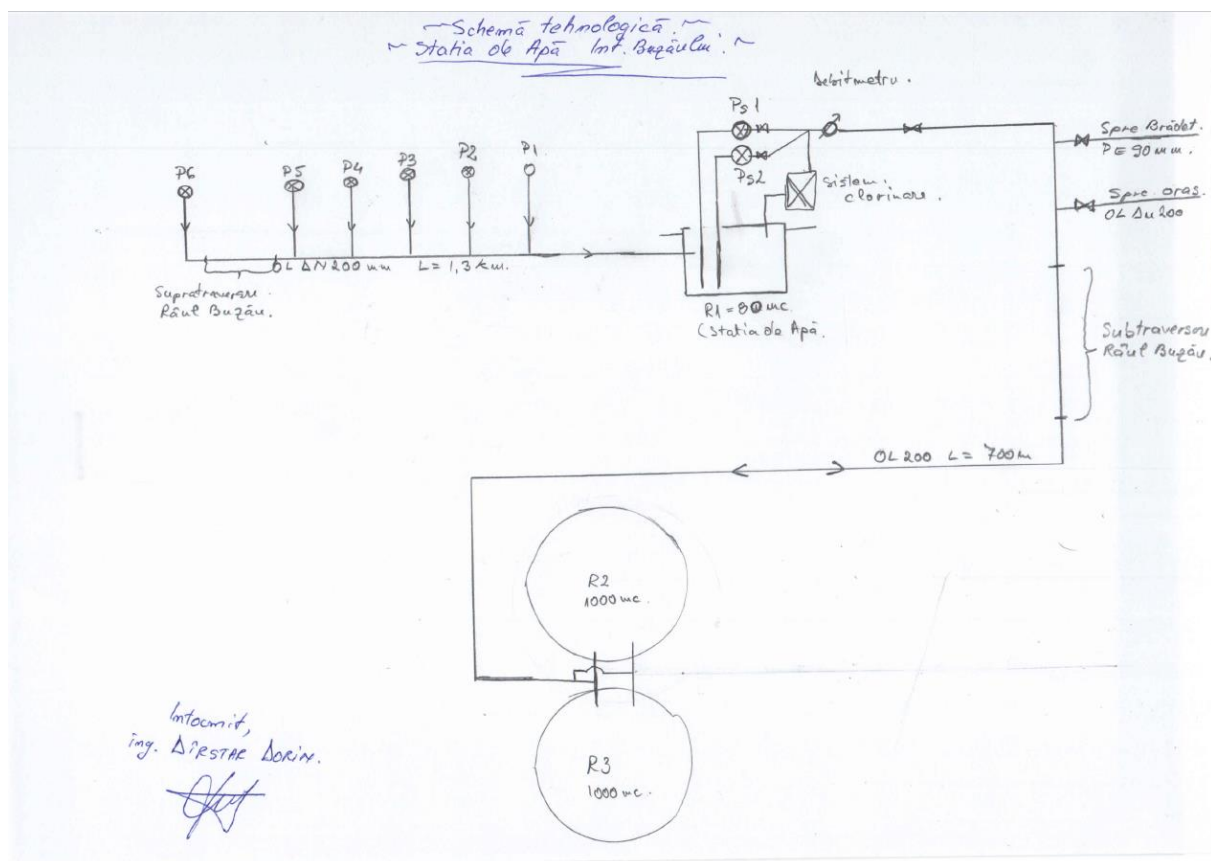 ~ Schemă tehnologică. ~
~ Statia de Apă Int. Buzăului. ~
Debitmetru.
Ps1
Ps2
P6
P5
P4
P3
P2
P1
Sistem.
clorinare.
Spre Brădet.
PE 90 mm.
Spre. oraș.
OL Δn 200
OL ΔN 200 mm L = 1,3 km.
Supratraversare
Râul Buzău.
R1 = 80 mc.
(Statia de Apă.
Subtraversare
Râul Buzău.
OL 200 L = 700 m
R2
1000 mc.
R3
1000 mc.
Intocmit,
ing. DÎRSTAR DORIN.